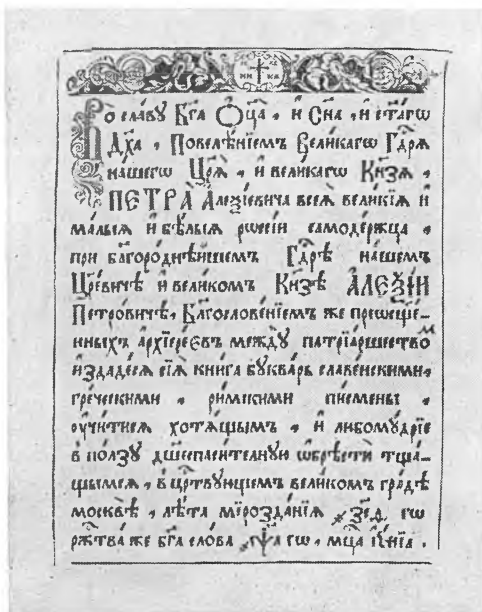 Во славу Бг҃а Ѻц҃а, и Сн҃а, и ст҃агѡ
Дх҃а, Повелѣнїемъ Великагѡ Гд҃рѧ
нашегѡ Цр҃ѧ, и великагѡ Кнѕ҃ѧ,
ПЕТРА̀ Алеѯїевича всеѧ̀ великїѧ и
малыѧ и бѣлыѧ рѡссіи самодержца,
при бл҃городнѣишемъ Гд҃рѣ нашемъ
Цр҃евичѣ и великомъ Кнѕ҃ѣ АЛЕѮІИ
Петровичѣ, Благословенїемъ же преѡсщ҃е-
нныхъ архїереєвъ междꙋ патрїаршествоⷨ
издадесѧ сїѧ̀ книга бꙋкварь славенскими,
греческими, римскими писмены,
ѹчитисѧ хотѧщымъ, и любомꙋдрїе
в ползꙋ дш҃еспасителнꙋю ѡбрѣсти тща-
щымсѧ, в црⷭ҇твꙋющемъ великомъ градѣ
москвѣ, лѣта мїрозданїѧ ҂зс҃д, гѡ
ржⷭ҇тва же бг҃а слова ҂аѱ҃а гѡ, мцⷭ҇а їꙋнїа.